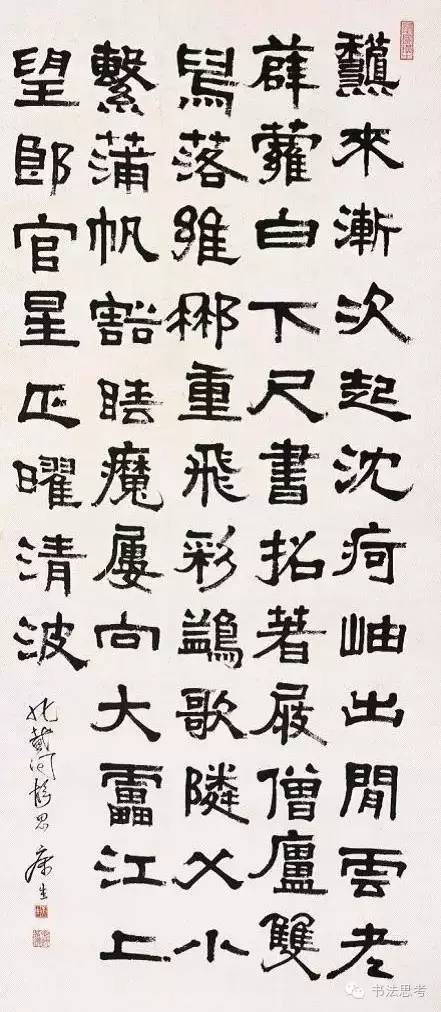 來漸次起沈疴岫出閒雲老
薜蘿白下尺書招著屐僧廬雙
舄落維那重飛彩鷁歌隣父小
繫蒲帆豁睫魔屢向大靁江上
望郎官星正曜清波
书法思考